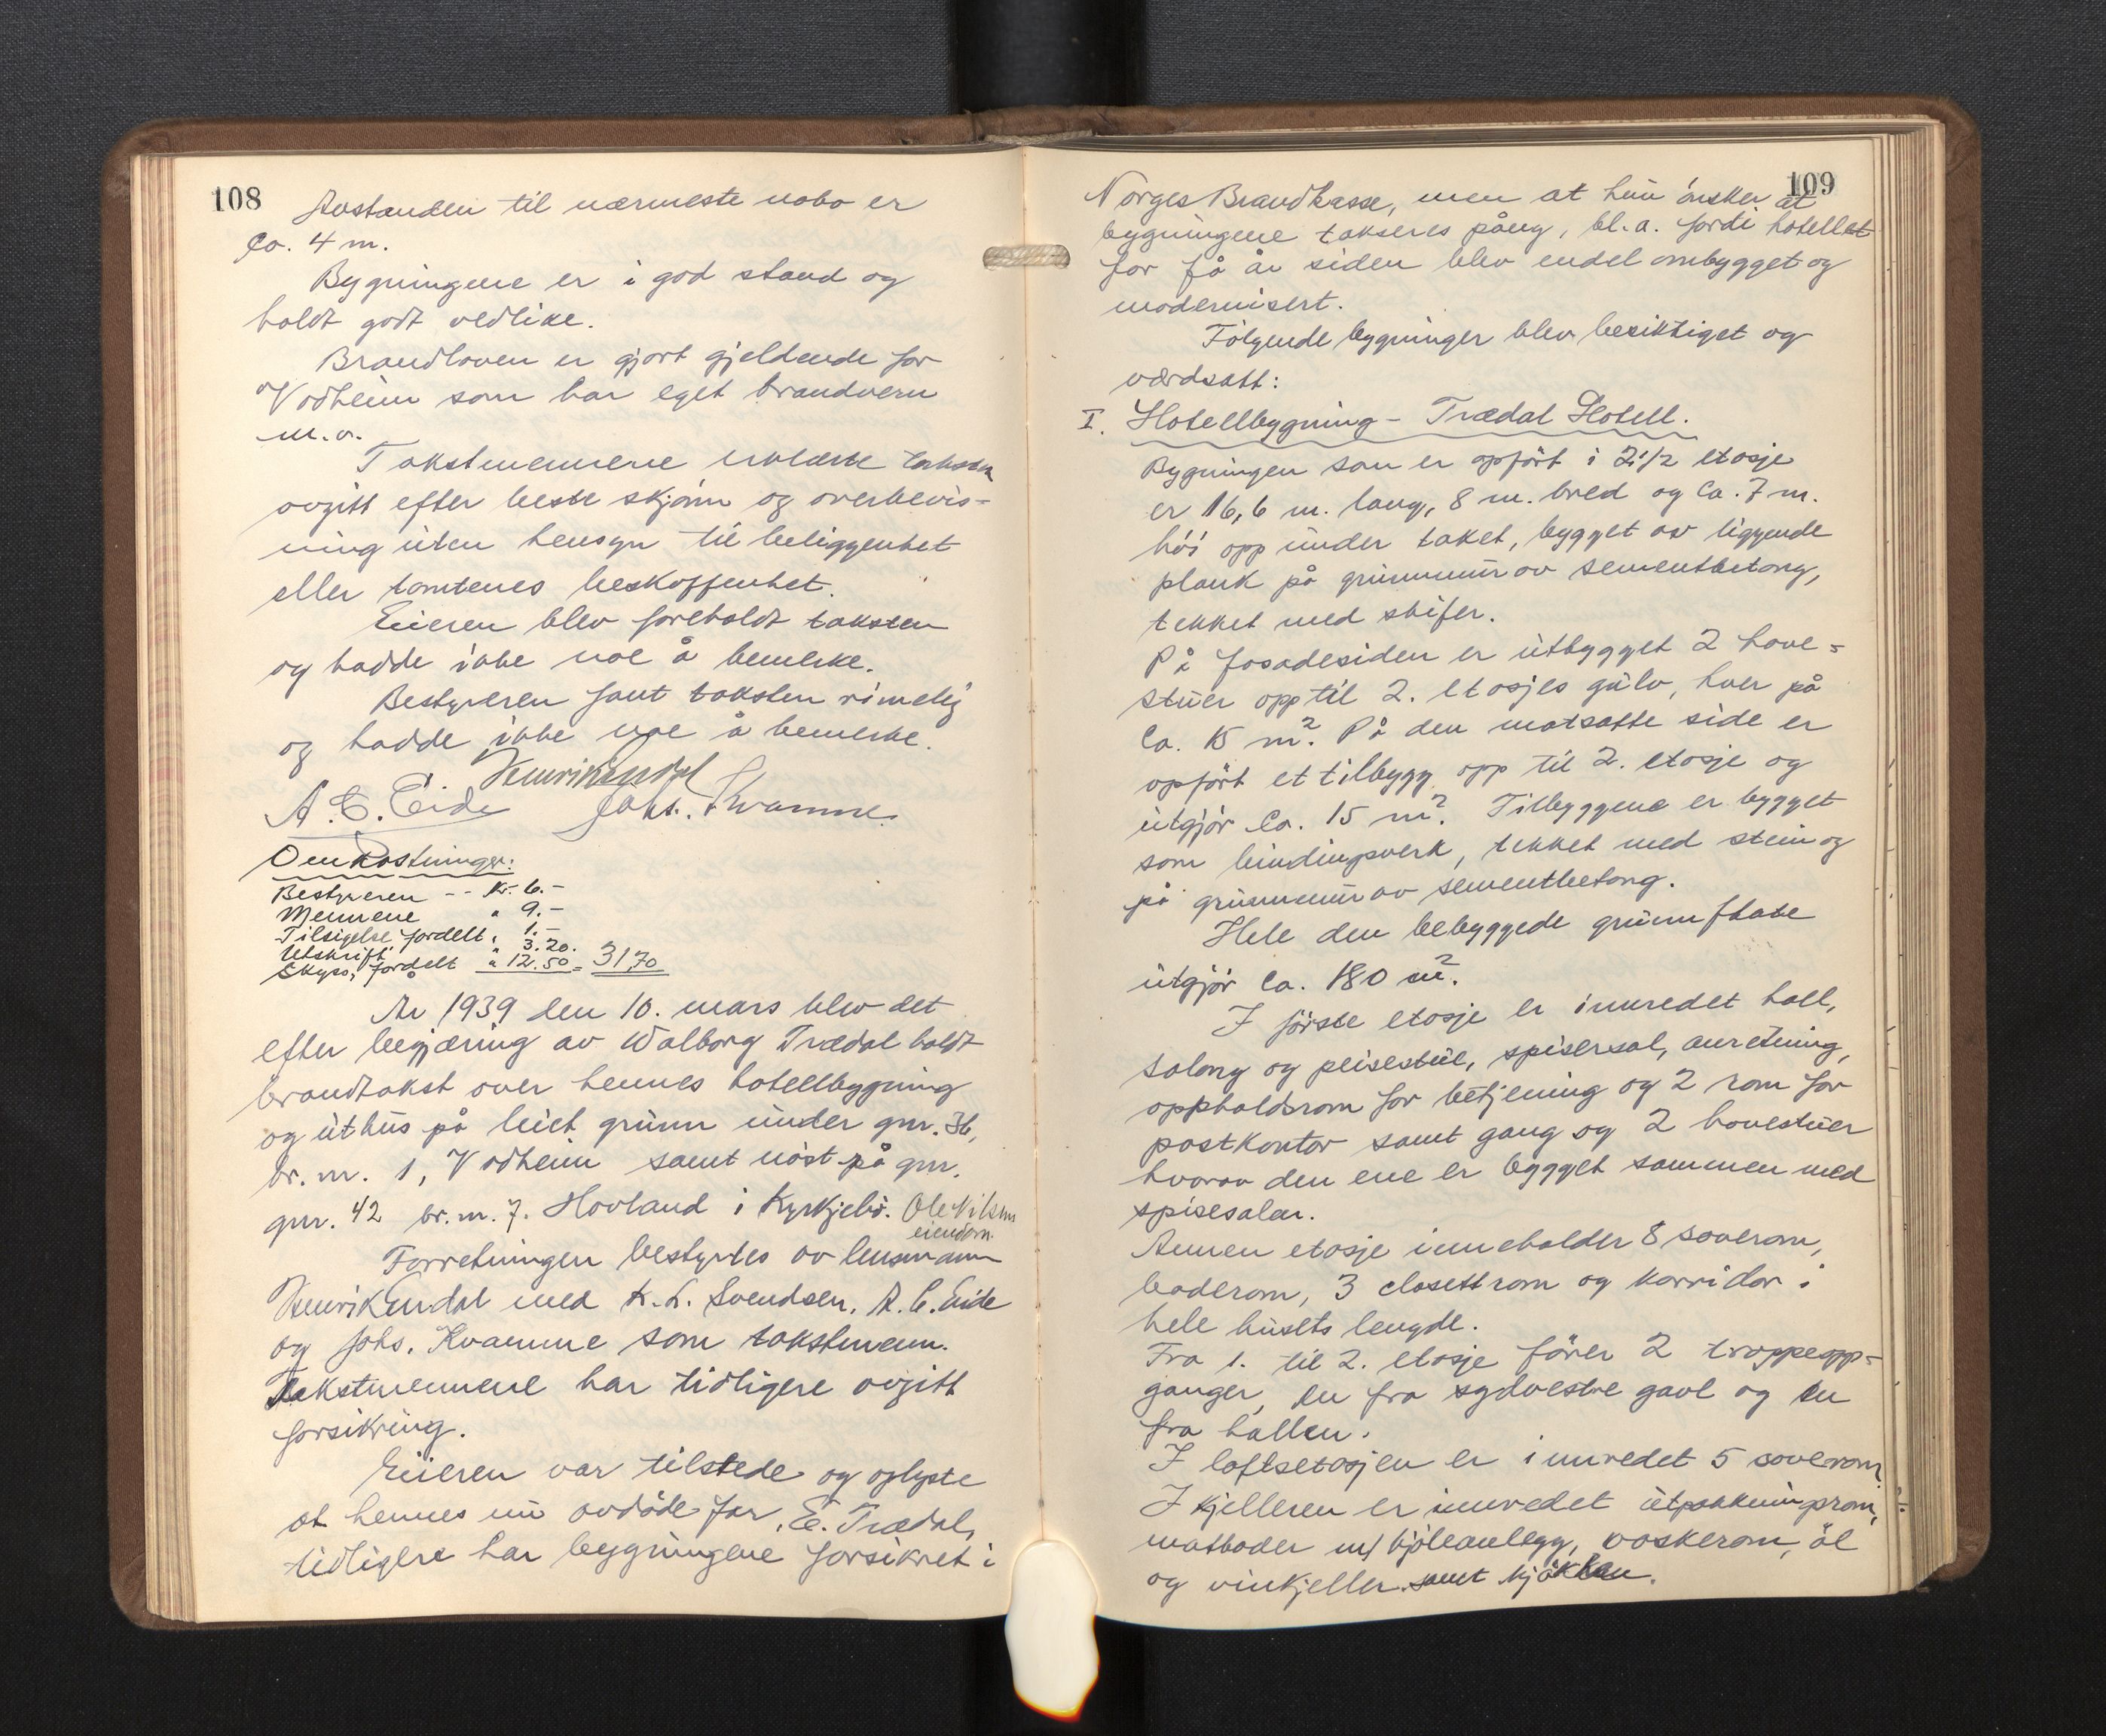 108
Avstanden til nærmeste nabo er
ca. 4 m.
Bygningene er i god stand og
holdt godt vedlike.
Brandloven er gjort gjeldende for
Vadheim som har eget brandvern
m.v.
Takstmennene erklærte taksten
avgitt efter beste skjønn og overbevis-
ning uten hensyn til beliggenhet
eller tomtenes beskaffenhet.
Eieren blev foreholdt taksten
og hadde ikke noe å bemerke.
Bestyreren fant taksten rimelig
og hadde ikke noe å bemerke.
Henrik Endal
A. C. Eide Johs. Kvamme.
Omkostninger:
Bestyreren -- Kr. 6.-
Mennene " 9.-
Tilsigelse, fordelt " 1.-
Utskrift " 3.20.
Skyss, fordelt " 12.50 = 31,70
År 1939 den 10. mars blev det
efter begjæring av Walborg Trædal holdt
brandtakst over hennes hotellbygning
og uthus på leiet grunn under gnr. 36,
br. nr. 1, Vadheim samt nöst på gnr.
gnr. 42 br. nr. 7. Hovland i Kyrkjebö. Ole Nilsens
eiendom.
Forretningen bestyrtes av lensmann
Henrik Endal med K. L. Svendsen, A. C. Eide
og Johs. Kvamme som takstmenn.
Takstmennene har tidligere avgitt
forsikring.
Eieren var tilstede og oplyste
at hennes nu avdöde far, E. Trædal,
tidligere har bygningene forsikret i
109
Norges Brandkasse, men at hun ønsker at
bygningene takseres påny, bl. a. fordi hotellet
for få år siden blev endel ombygget og
modernisert.
Følgende bygninger blev besiktiget og
værdsatt:
I. Hotellbygning - Trædal Hotell.
Bygningen som er opfört i 2 1/2 etasje
er 16,6 m. lang, 8 m. bred og ca. 7 m.
höi opp under taket, bygget av liggende
plank på grunnmur av sementbetong,
tekket med skifer.
På fasadesiden er utbygget 2 have-
stuer opp til 2. etasjes gulv, hver på
ca. 15 m². På den motsatte side er
opfört et tilbygg opp til 2. etasje og
utgjör ca. 15 m². Tilbyggene er bygget
som bindingsverk, tekket med stein og
på grunnmur av sementbetong.
Hele den bebyggede grunnflate
utgjör ca. 180 m².
I förste etasje er innredet hall,
salong og peisestue, spisersal, anretning,
oppholdsrom for betjening og 2 rom for
postkontor samt gang og 2 havestuer
hvorav den ene er bygget sammen med
spisesalen.
Annen etasje inneholder 8 soverom,
baderom, 3 closettrom og korridor i
hele husets lengde.
Fra 1. til 2. etasje förer 2 trappeopp-
ganger, en fra sydvestre gavl og en
fra hallen.
I loftsetasjen er innredet 5 soverom
I kjelleren er innredet utpakningsrom,
matboder m/ kjöleanlegg, vaskerom, öl
og vinkjeller samt kjökken.